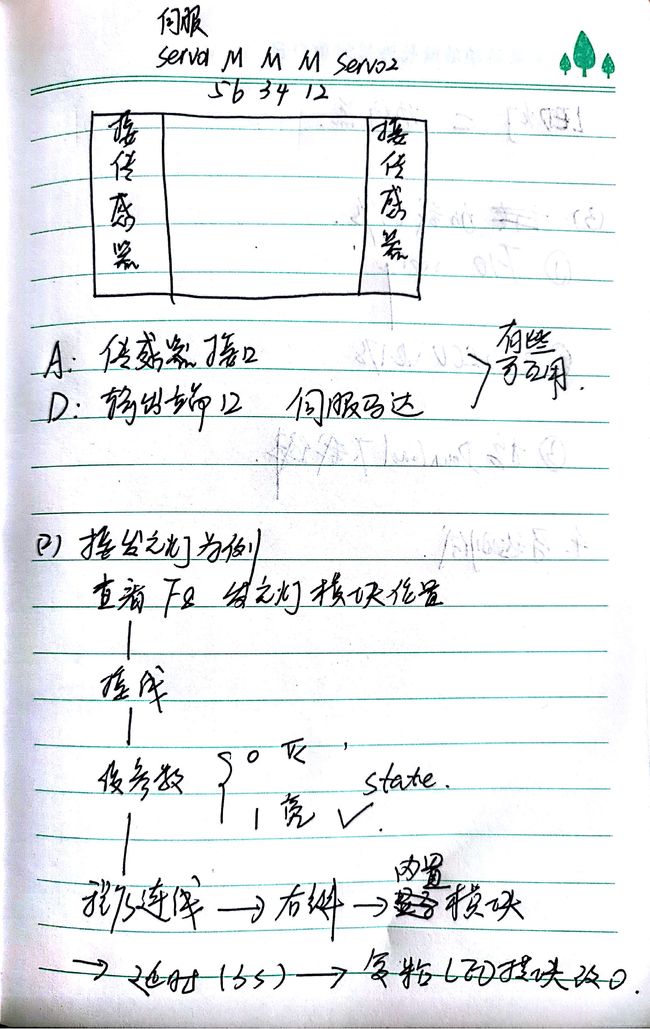 伺服
servo1 M M M servo2
56 34 12
接传感器
接传感器
A: 传感器接口
D: 输出端口 伺服马达
有些可互用.
(2) 接发光灯为例
查看 F8 发光灯模块位置
接线
设参数
0 灭
1 亮 ✓.
state.
程序连线 → 右键 → 内置模块
→ 延时 (3s) → 复粘 LED模块改0.